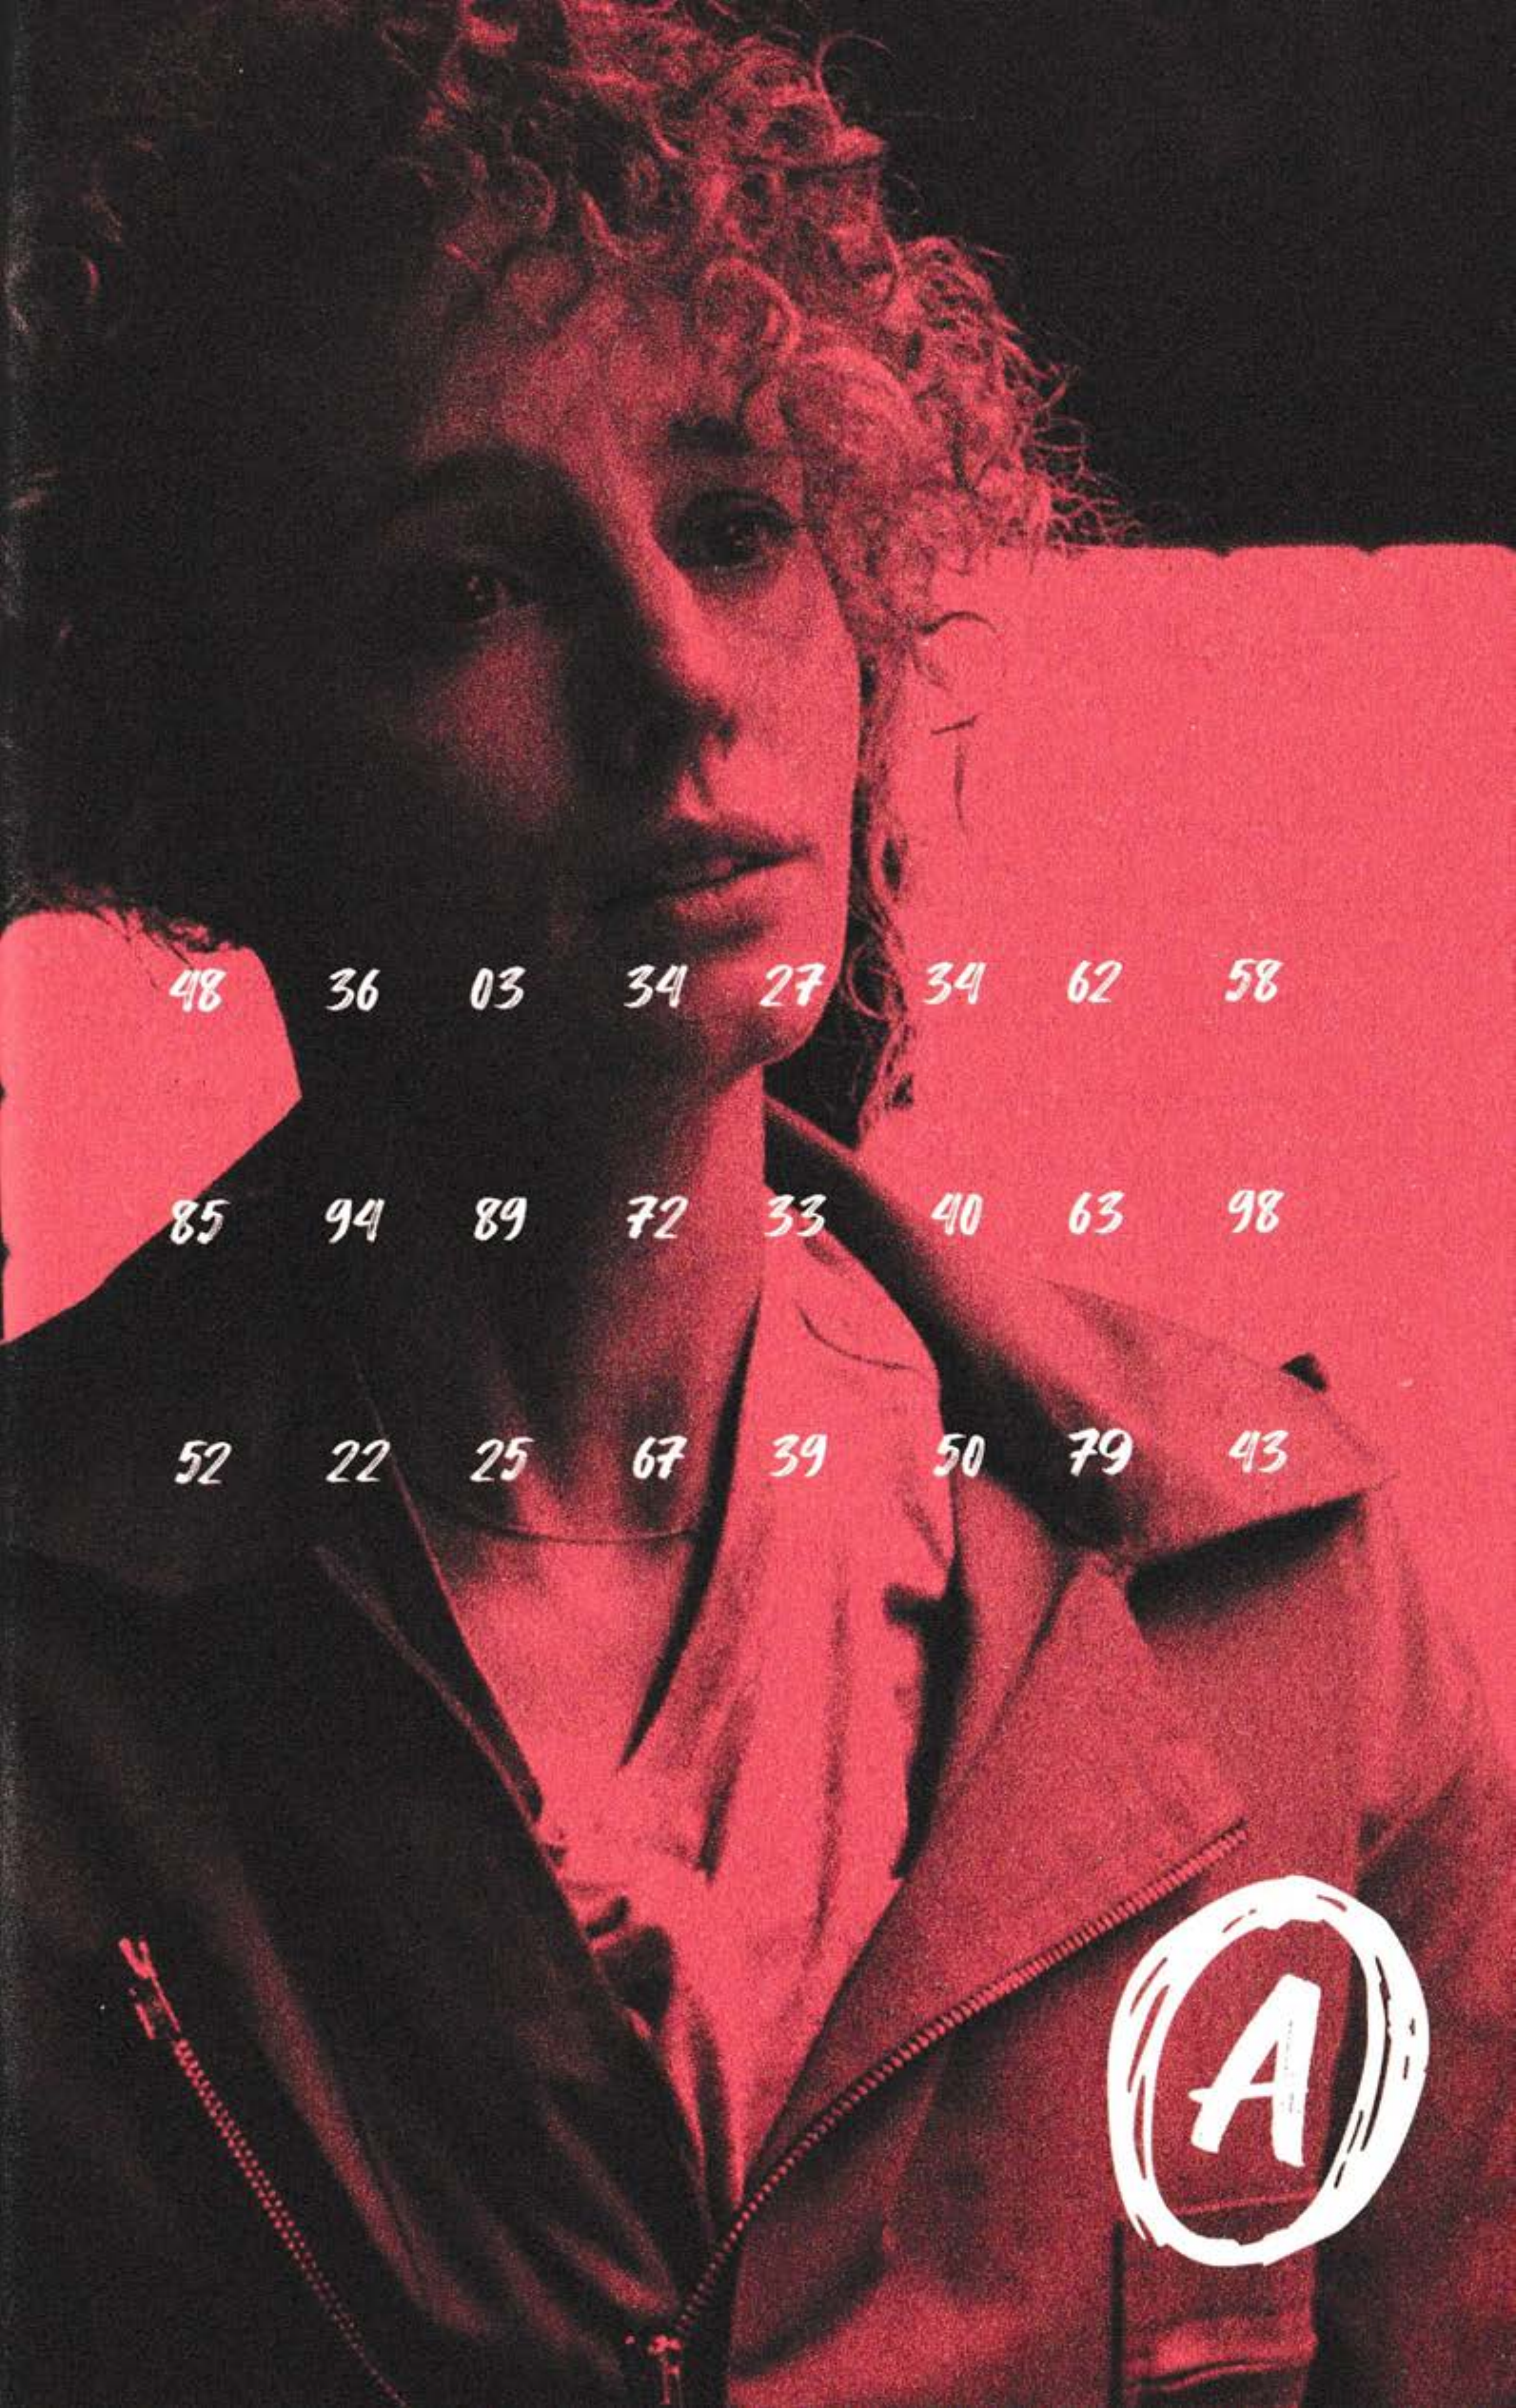 48 36 03 34 27 34 62 58
85 94 89 72 33 40 63 98
52 22 25 67 39 50 79 43
A